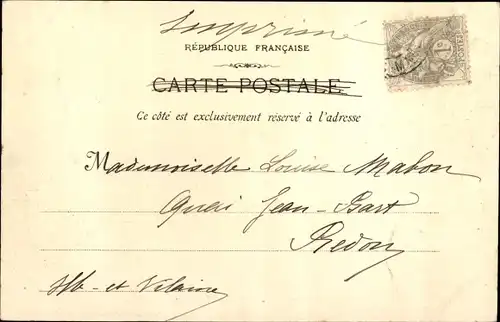 Imprimé
RÉPUBLIQUE FRANÇAISE
CARTE POSTALE
Ce côté est exclusivement réservé à l'adresse
Mademoiselle Louise Mahon
Quai Jean-Bart
Redon
Ille-et-Vilaine
1c